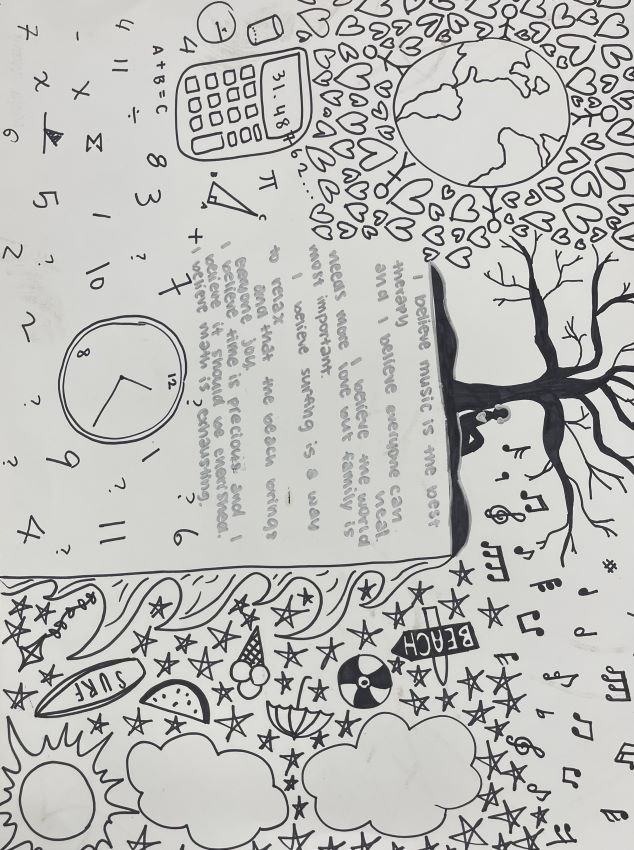 I believe music is the best
therapy
and I believe everyone can
heal
I believe the world
needs more love but family is
most important.
I believe surfing is a way
to relax
and that the beach brings
everyone joy.
I believe time is precious and I
believe it should be cherished.
I believe math is exhausting.
BEACH
SURF
31.48
A+B=C
π
12
8